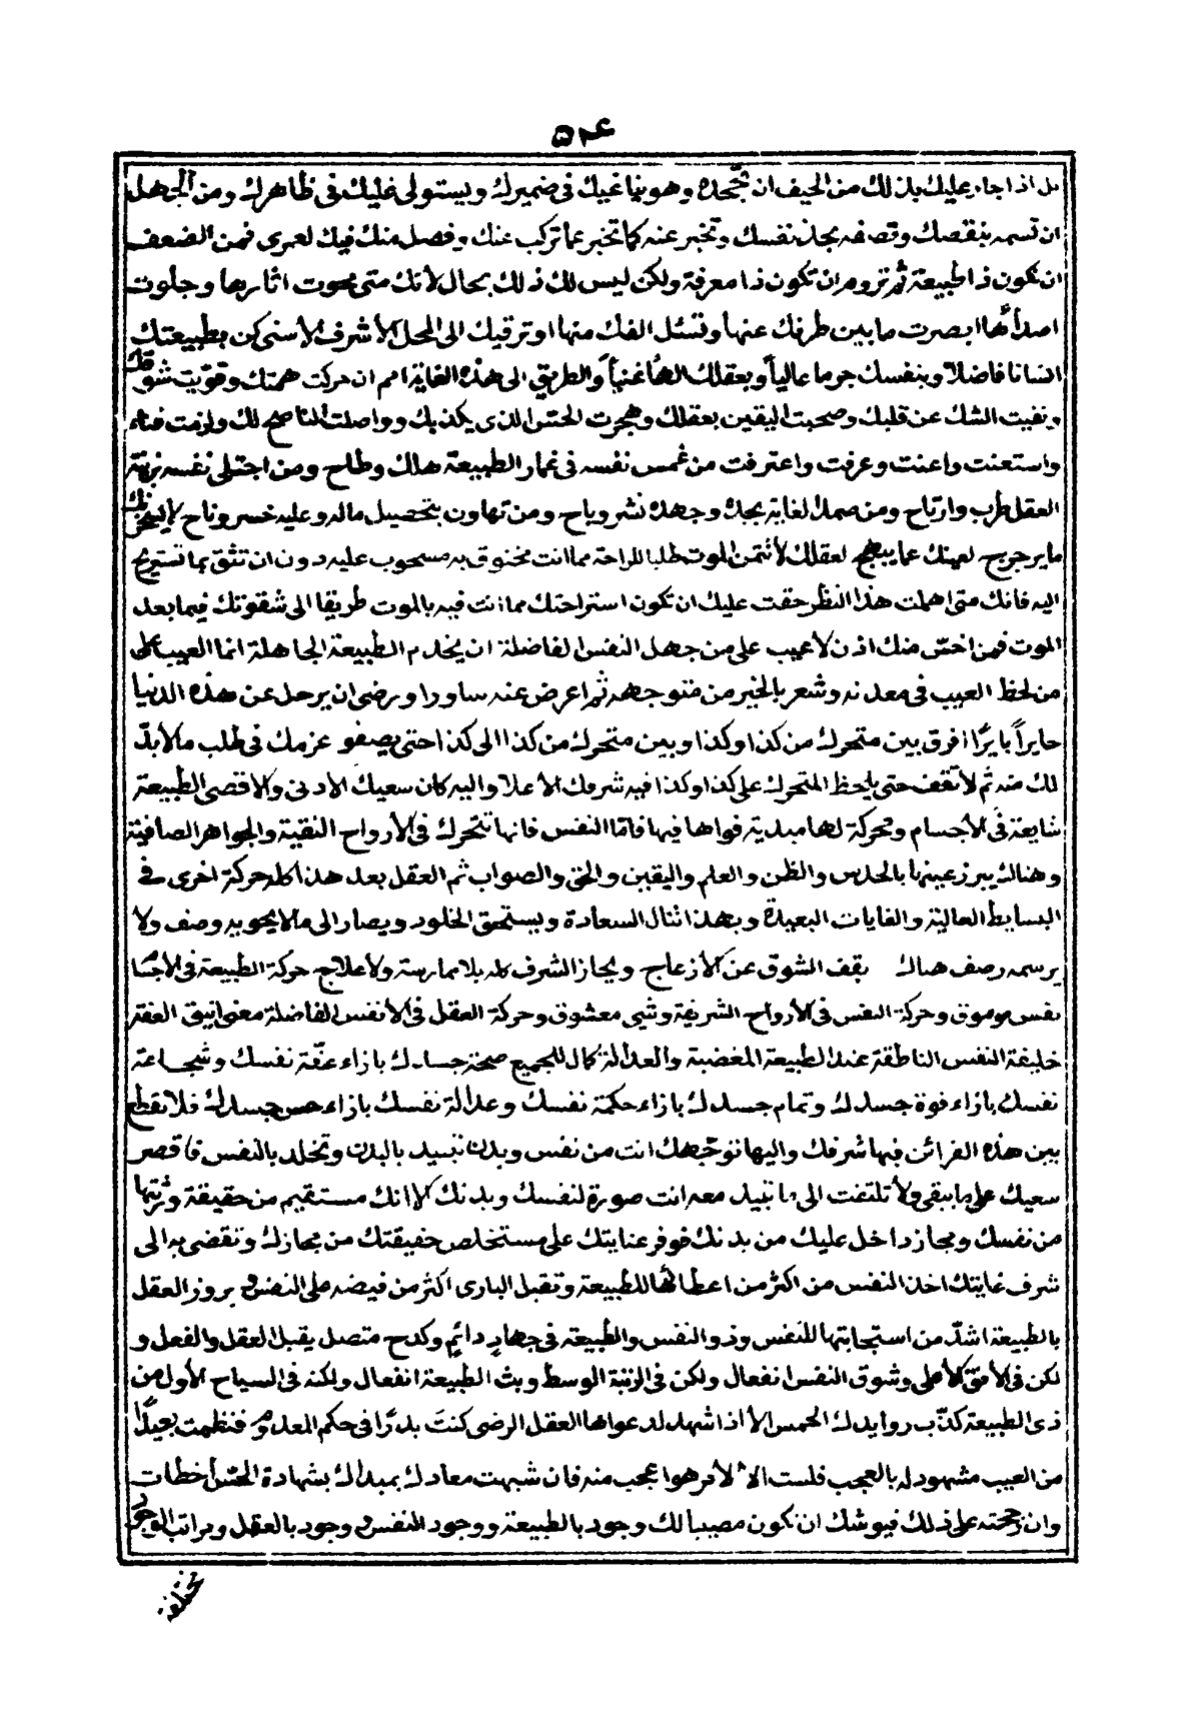 ٥٢٤
بل اذا جاد عليك بذلك من الحيف ان تجحده وهو يناغيك في ضميرك ويستولى عليك في ظاهرك ومن الجهل
ان تسمه بنقصك وتصفه بحذ نفسك وتخبر عنه كما تخبر عما تركب منك وفصل منك فيك لعمرى فمن الضعف
ان تكون ذا طبيعة ثم تروم ان تكون ذا معرفة ولكن ليس لك ذلك بحال لأنك متى محوت اثارها وجلوت
اصدأها ابصرت ما بين طرفك عنها وتسئل الفك منها او ترقيك الى المحل الأشرف الأسنى كن بطبيعتك
انسانا فاضلا وبنفسك جرما عالياً وبعقلك الهاً غنياً والطريق الى هذه الغاية امم ان حركت همتك وقويت شوقك
ونفيت الشك عن قلبك وصحبت اليقين بعقلك وهجرت الحس الذى يكذبك وواصلت الناصح لك ولزمت فناء
واستعنت واعنت وعرفت واعترفت من غمس نفسه في غمار الطبيعة هلك وطاح ومن اجتلى نفسه بزينة
العقل طرب وارتاح ومن صمد لغاية بجد وجهد نشر وياح ومن تهاون بتحصيل ماله وعليه خسر وناح لا يحزنك
ما يرجرج لعينك عما يبهج لعقلك لا تتمن الموت طلبا للراحة مما انت مخنوق به مسحوب عليه دون ان تثق بما تستريح
اليه فانك متى اهملت هذا النظر حقت عليك ان تكون استراحتك مما انت فيه بالموت طريقا الى شقوتك فيما بعد
الموت فمن اخس منك اذن لا عيب على من جهل النفس الفاضلة ان يخدم الطبيعة الجاهلة انما العيب على
من لحظ العيب في معدنه وشعر بالخير من متوجهه ثم اعرض عنه ساورا ورضى ان يرحل عن هذه الدنيا
حايراً بايرًا افرق بين متحرك من كذا وكذا وبين متحرك من كذا الى كذا حتى يصفو عزمك في طلب ما لا بدّ
لك منه ثم لا تقف حتى يلحظ المتحرك على كذا وكذا فيه شرفك الأعلا واليه كان سعيك الأدنى والاقصى الطبيعة
شايعة في الأجسام ومحركة لها مبدية قواها فيها فامّا النفس فانها تتحرك في الأرواح النقية والجواهر الصافية
وهنالك يبرز عينها بالحدس والظن والعلم واليقين والحق والصواب ثم العقل بعد هذا كله حركة اخرى في
البسايط العالية والغايات البعيدة وبهذا تنال السعادة ويستحق الخلود ويصار الى ما لا يحويه وصف ولا
يرسمه رصف هناك يقف الشوق عن الأزعاج ويحاز الشرف كله بلا ممارسة ولا علاج حركة الطبيعة في الأجسا
نفس موموق وحركة النفس في الأرواح الشريفة وشى معشوق وحركة العقل في الأنفس الفاضلة معنى انيق العفة
خليفة النفس الناطقة عند الطبيعة المغضبة والعدالة كمال للجميع صحة جسدك بازاء عفّة نفسك وشجاعة
نفسك بازاء قوة جسدك وتمام جسدك بازاء حكمة نفسك وعدالة نفسك بازاء حسن جسدك فلا تقطع
بين هذه القرائن فبها شرفك واليها توجهك انت من نفس وبدن تبيد بالبدن وتخلد بالنفس فاقصر
سعيك على ما يبقى ولا تلتفت الى ما تبيد معه انت صورة لنفسك وبدنك كلا انك مستقيم من حقيقة وثرتها
من نفسك ومجاز داخل عليك من بدنك فوفر عنايتك على مستخلص حقيقتك من مجازك وتقضى به الى
شرف غايتك اخذ النفس من اكثر من اعطائها للطبيعة وتقبل البارى اكثر من فيضه على النفس و بروز العقل
بالطبيعة اشدّ من استجابتها للنفس وذو النفس والطبيعة في جهادٍ دائمٍ وكدح متصل يقبل العقل والفعل و
لكن في الأفق الأعلى وشوق النفس انفعال ولكن في الرتبة الوسط وبث الطبيعة انفعال ولكنه في السياح الأول من
ذى الطبيعة كذّب روايدك الخمس الا اذا شهد لدعواها العقل الرضى كنتَ بدرًا في حكم العدم فنظمت بعيدًا
من العيب مشهود له بالعجب فلست الا لأمر هو اعجب منه فان شبهت معادك بمبدأك بشهادة الحسّ اخطات
وان رجحته على ذلك فيوشك ان تكون مصيبا لك وجود بالطبيعة ووجود بالنفس و وجود بالعقل ومراتب الوجود
مختلفة